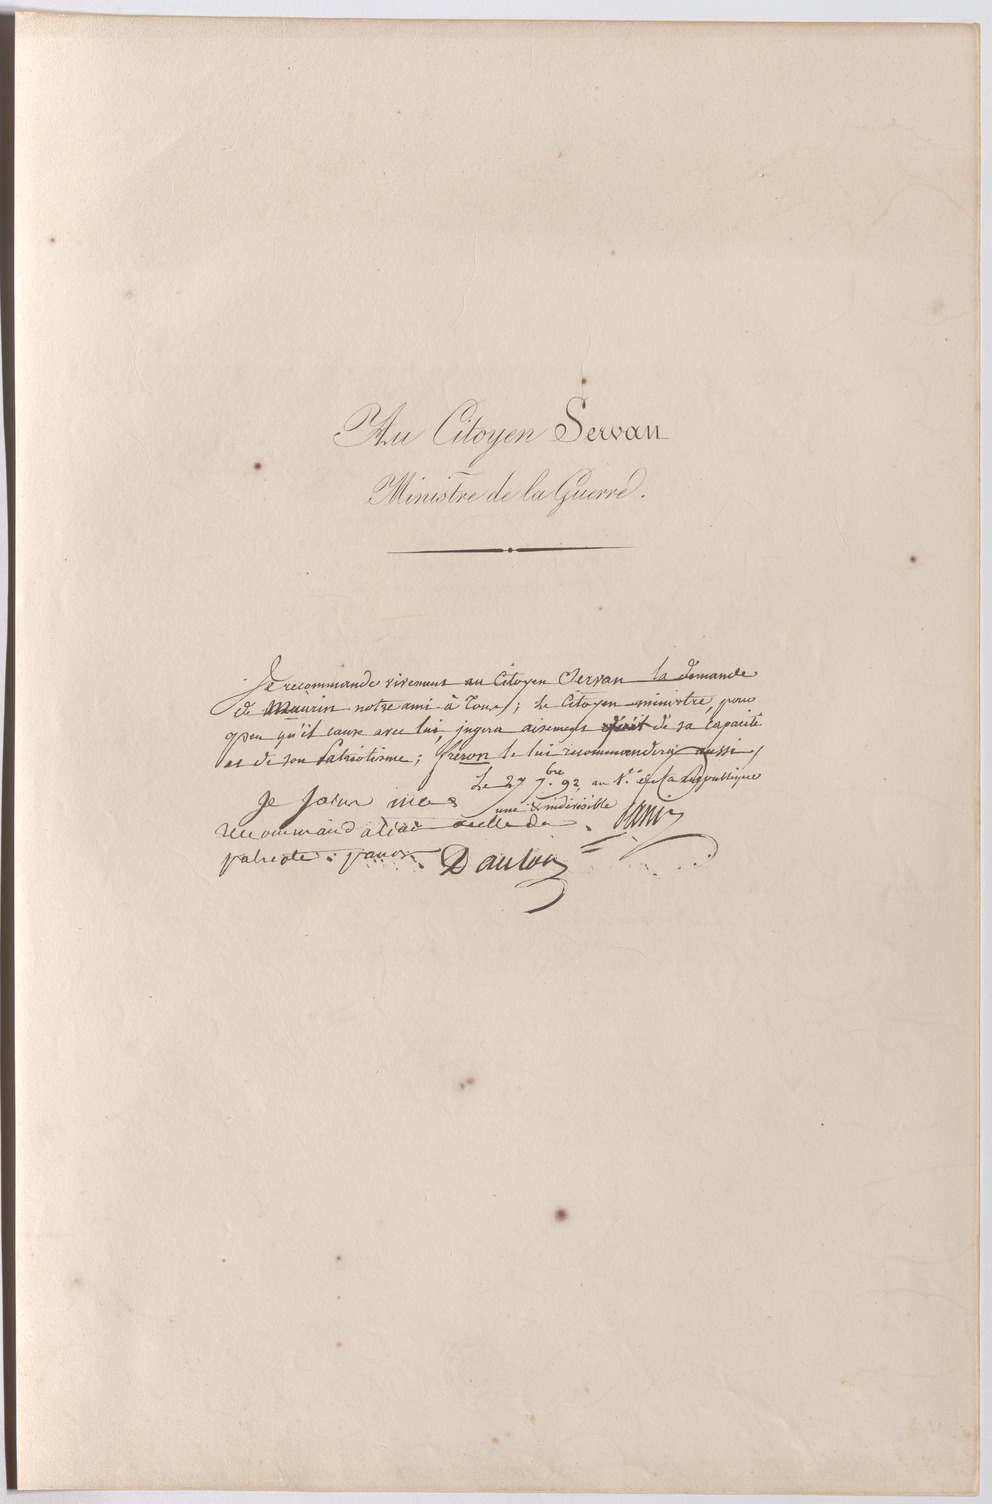 Au Citoyen Servan
Ministre de la Guerre.
Je recommande vivement au Citoyen Servan la demande
de Maurin notre ami à Tous; Le Citoyen ministre, pour
peu qu'il cause avec lui, jugera aisement de sa Capacité
et de son Patriotisme; fréron le lui recommandera aussi
Le 27 7.bre 92, au 1.er de la Republique
une & indivisible
Je joins mes
recommandations a celle du
patriote panis
Panis
Danton